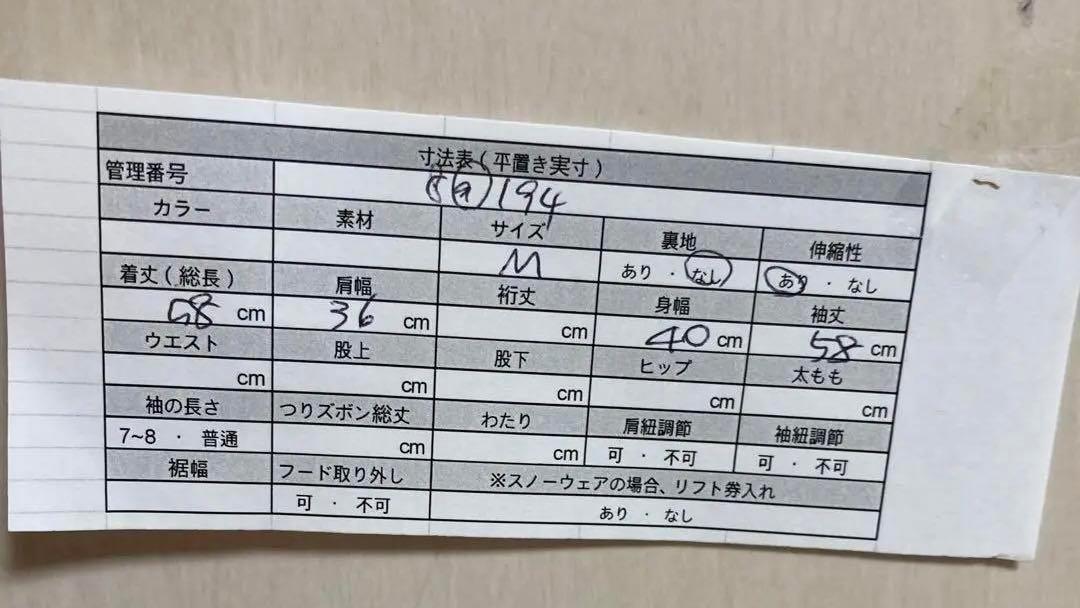 寸法表(平置き実寸)
管理番号 8ⓐ194
カラー 素材 サイズ 裏地 伸縮性
M あり ・ なし あり ・ なし
着丈(総長) 肩幅 裄丈 身幅 袖丈
cm 36 cm cm 40 cm 58 cm
ウエスト 股上 股下 ヒップ 太もも
cm cm cm cm cm
袖の長さ つりズボン総丈 わたり 肩紐調節 袖紐調節
7~8 ・ 普通 cm cm 可 ・ 不可 可 ・ 不可
裾幅 フード取り外し ※スノーウェアの場合、リフト券入れ
可 ・ 不可 あり ・ なし